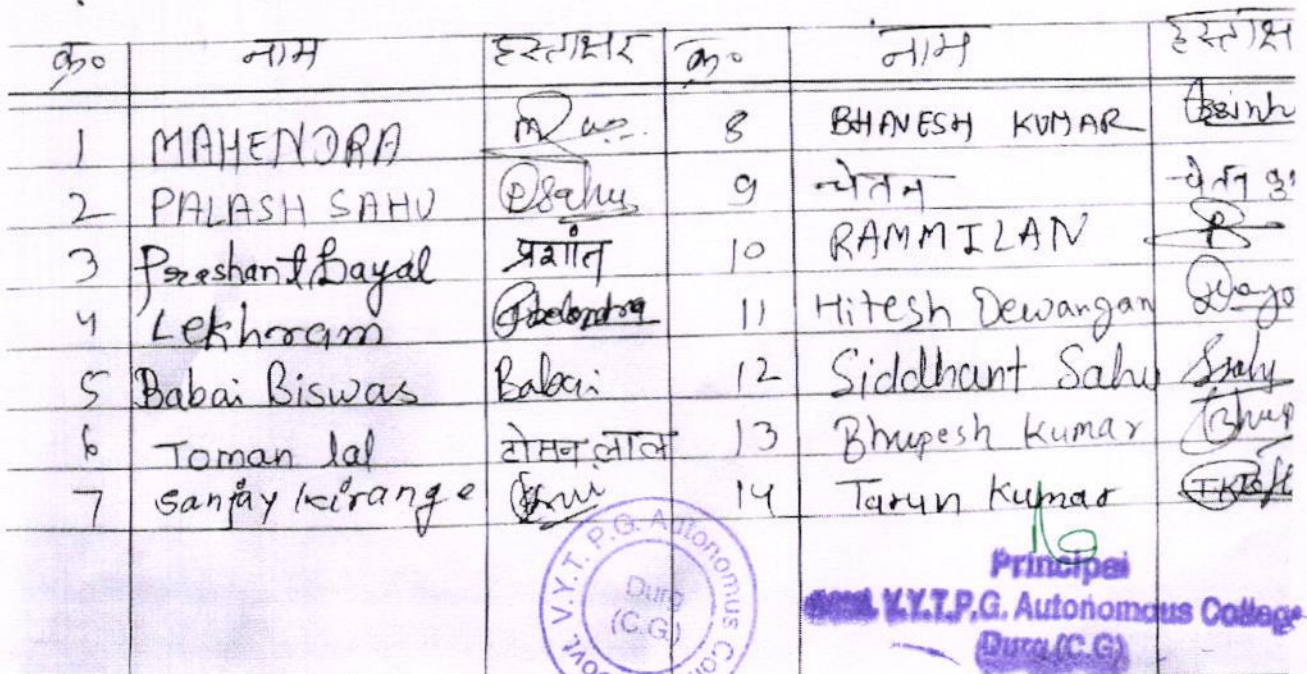 क्र० नाम हस्ताक्षर क्र० नाम हस्ताक्ष
1 MAHENDRA 8 BHANESH KUMAR
2 PALASH SAHU PSahu 9 चेतन चेतन कु
3 Prashant Dayal प्रशांत 10 RAMMILAN R
4 Lekhram 11 Hitesh Dewangan
5 Babai Biswas Babai 12 Siddhant Sahu SSahu
6 Toman lal टोमन लाल 13 Bhupesh Kumar Bhup
7 Sanjay Kirange 14 Tarun Kumar
Govt. V.Y.T. P.G. Autonomus Col
Durg
(C.G.)
Principal
V.Y.T.P.G. Autonomous College
Durg (C.G)